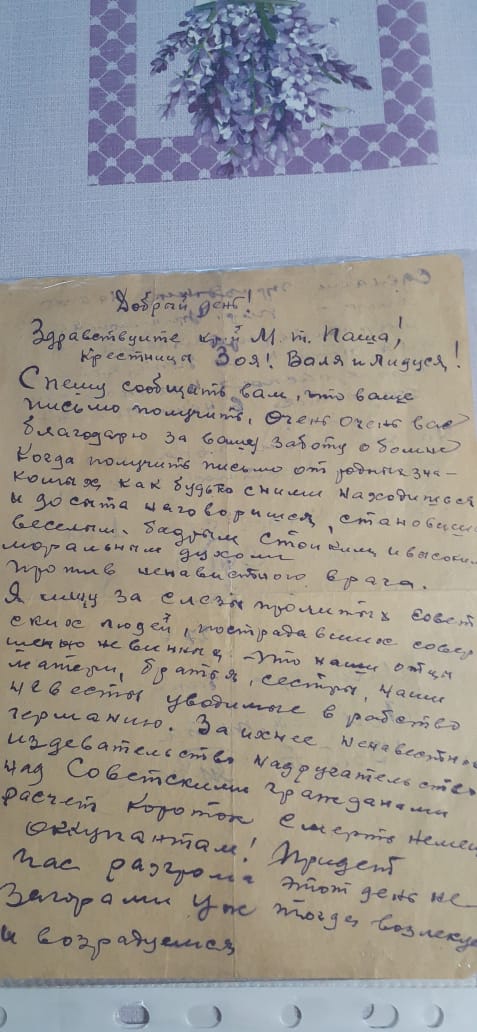 Добрый день!
Здравствуйте М. т. Паша!
Крестницы Зоя! Валя и Лидуся!
Спешу сообщать вам, что ваще
письмо получить, Очень очень вас
благодарю за вашу заботу обомне
Когда получить письмо от родных зна-
комых как будько сними находишься
и досыта наговоришся, становиш
веселым. бадрым стойким и высоким
моральным духом
против ненавистного врага.
Я мщу за слезы пролитых совет
ских людей, пострадавших совер
шенно невинных что наши отцы
матери, братья, сестры, наши
невесты уводимые в рабство
германию. За ихнее ненавестно
издевательство надругательство
над Советскими гражданами
расчет короток смерть немец
оккупантам! Придет
час разгрома этот день не
Загорами уж тогда
и возрадуемся